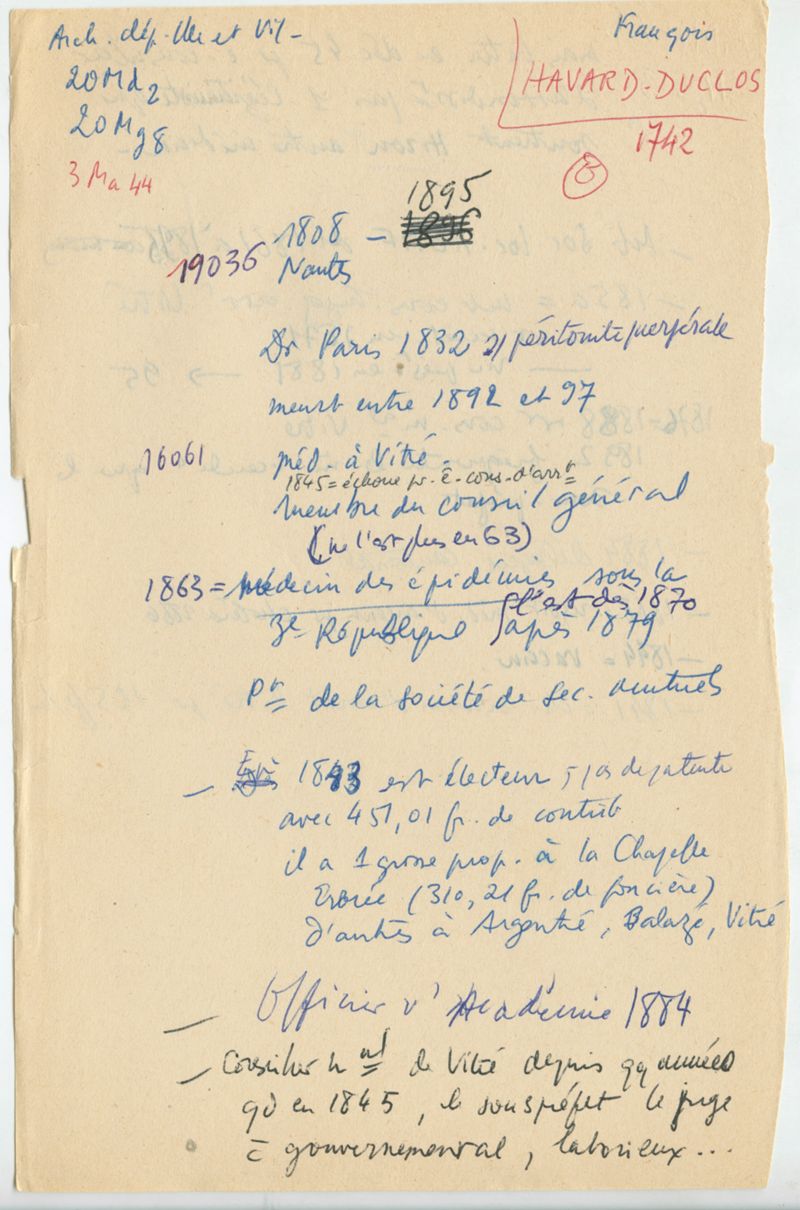 Arch. dép. Ille et Vil-
François
20Md2
HAVARD-DUCLOS
20Mg8
1742
3 Ma 44
8
1895
1808 - 1896
19036 Nantes
Dr Paris 1832 péritonite puerpérale
meurt entre 1892 et 97
16061 méd. à Vitré -
1845 = échoue pr ê. cons. d'arrt
membre du conseil général
(ne l'est plus en 63)
1863 = médecin des épidémies sous la
(l'est dès 1870
3e République après 1879
Pt de la société de sec. mutuels
- 1843 est électeur de patente
avec 451,01 fr. de contrib
il a 1 grosse prop. à la Chapelle
Erbrée (310,21 fr. de foncière)
d'autres à Argentré, Balazé, Vitré
- Officier d'Académie 1884
- Conseiller mal de Vitré depuis qq années
qd en 1845, le souspréfet le juge
c gouvernemental, laborieux...